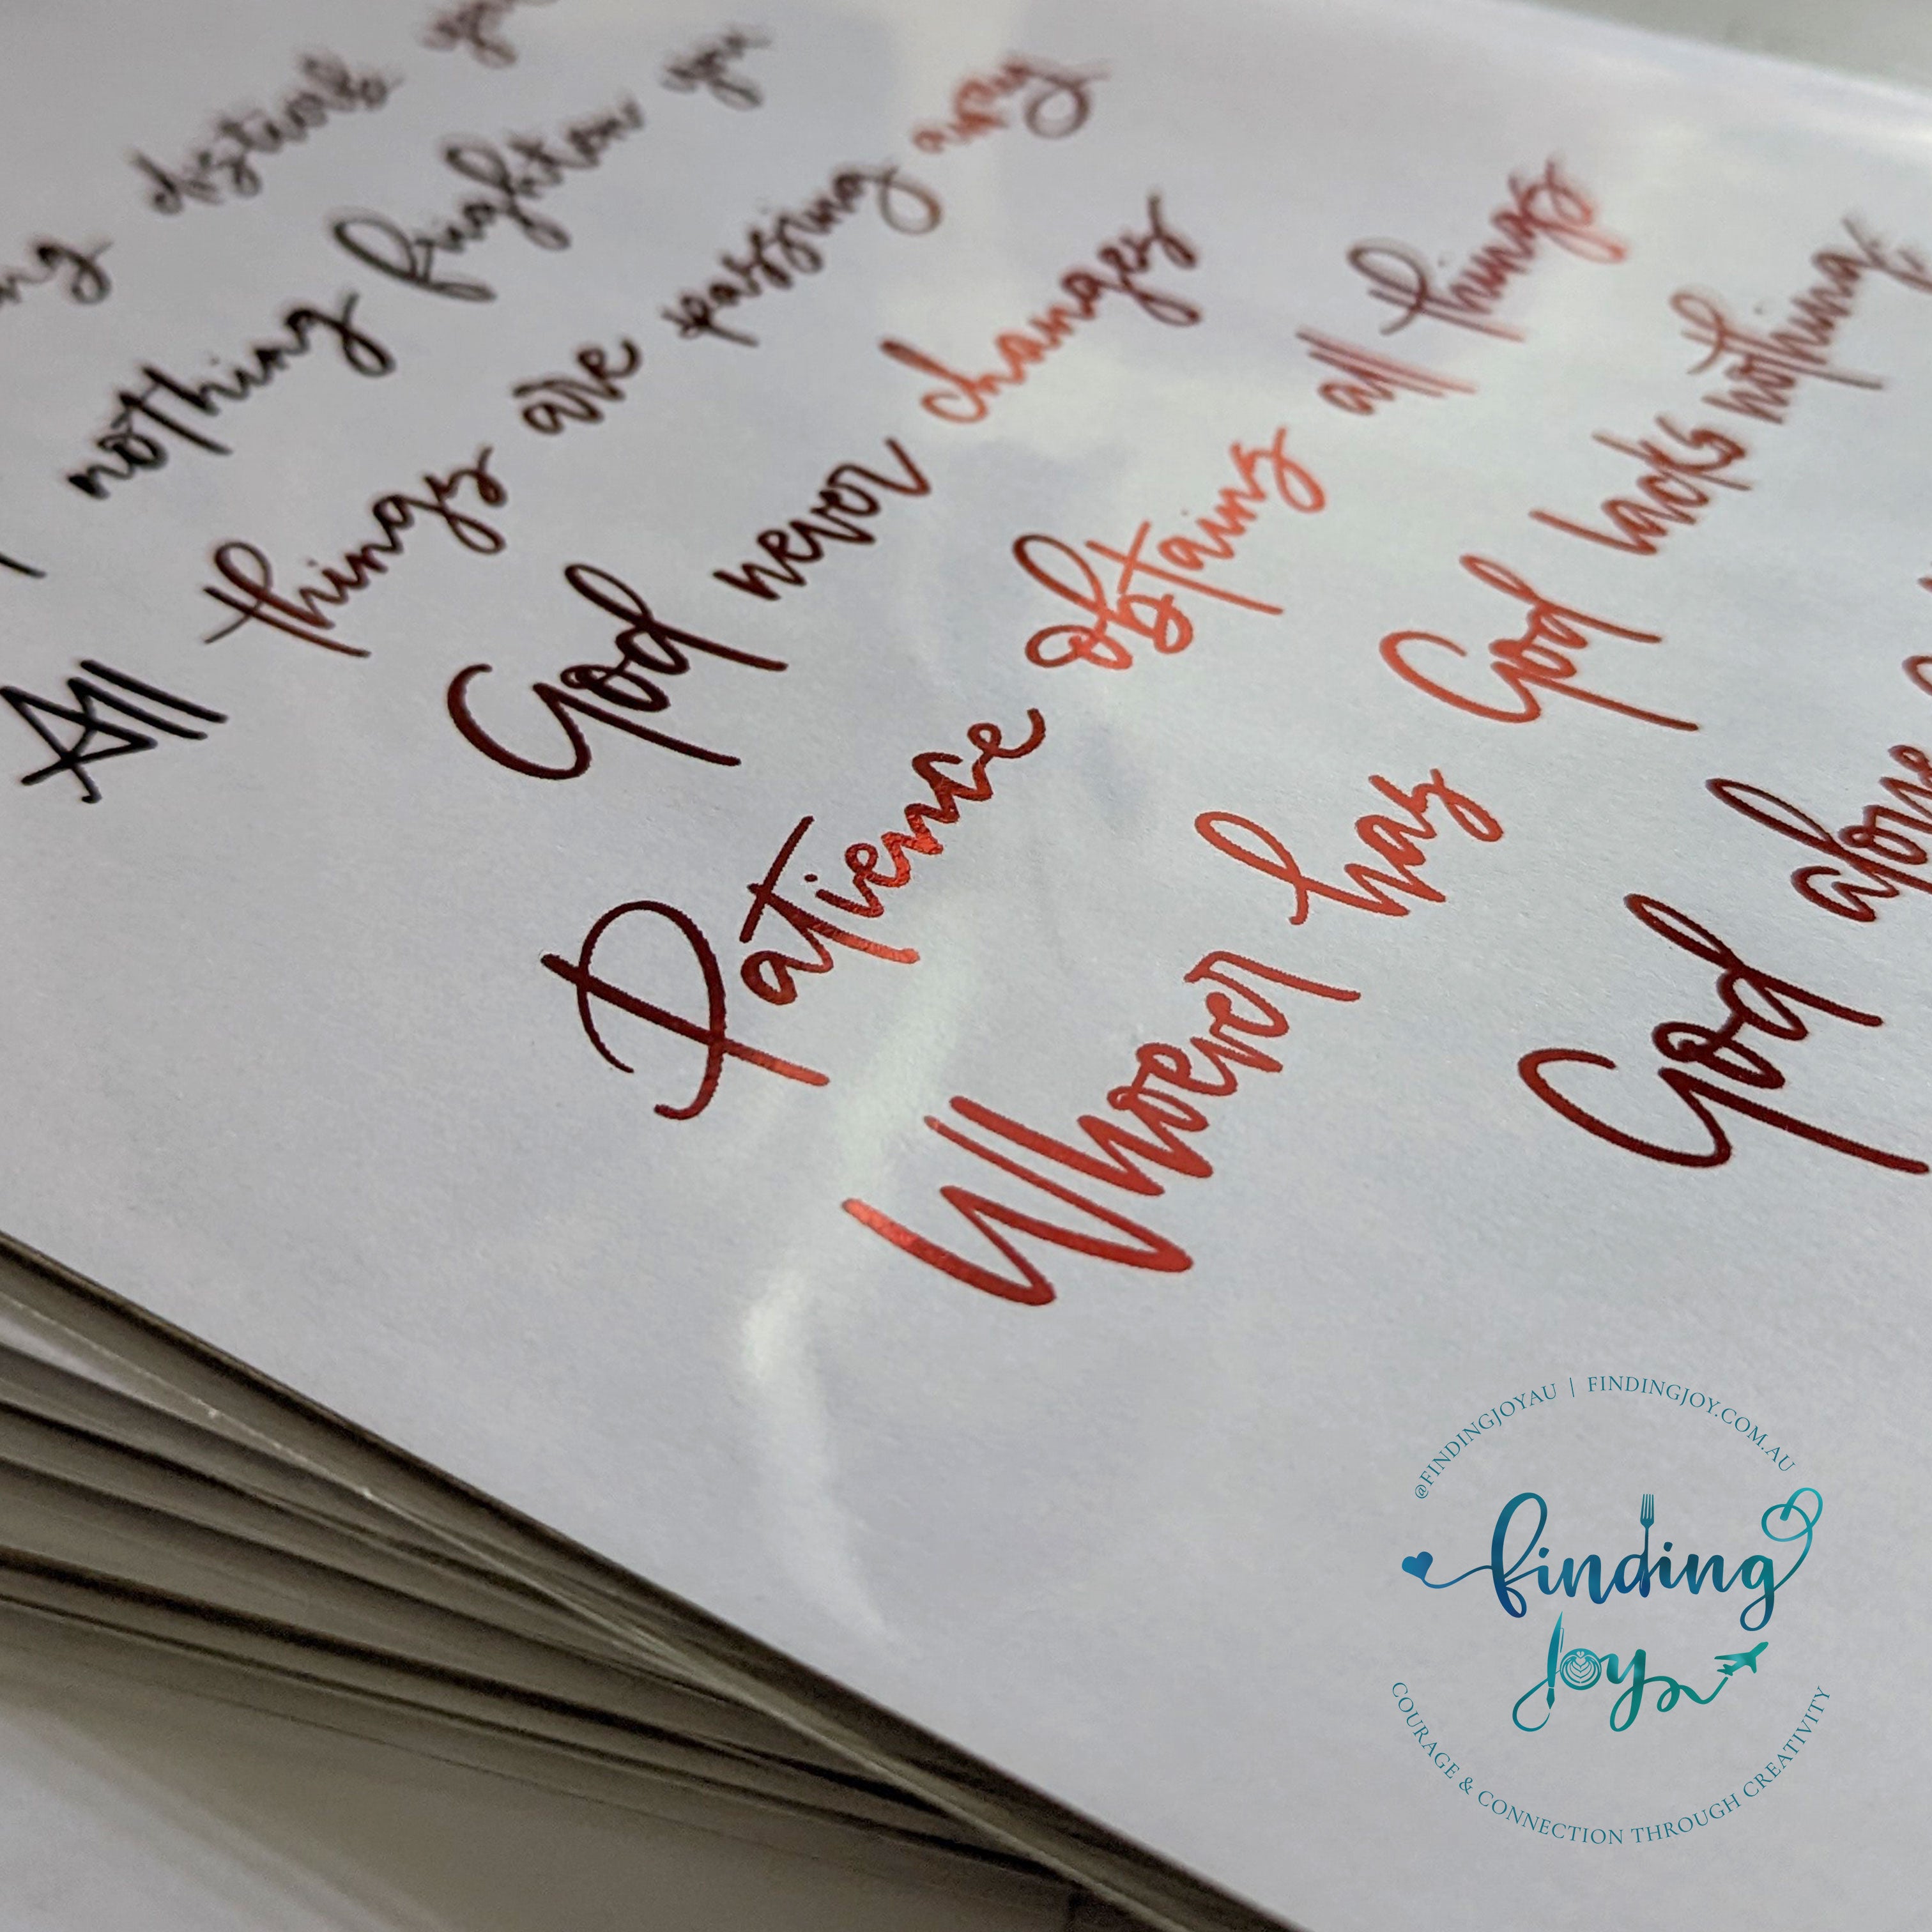 disturb you
nothing frighten you
All things are passing away
God never changes
Patience obtains all things
Whoever has God lacks nothing
God alone
@FINDINGJOYAU | FINDINGJOY.COM.AU
finding
joy
COURAGE & CONNECTION THROUGH CREATIVITY